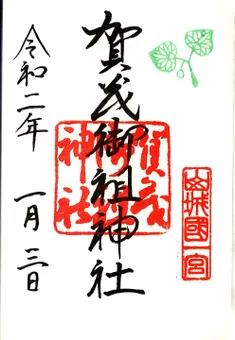 山城國一宮
賀茂御祖神社
賀茂
御祖
神社
令和二年 一月 三日